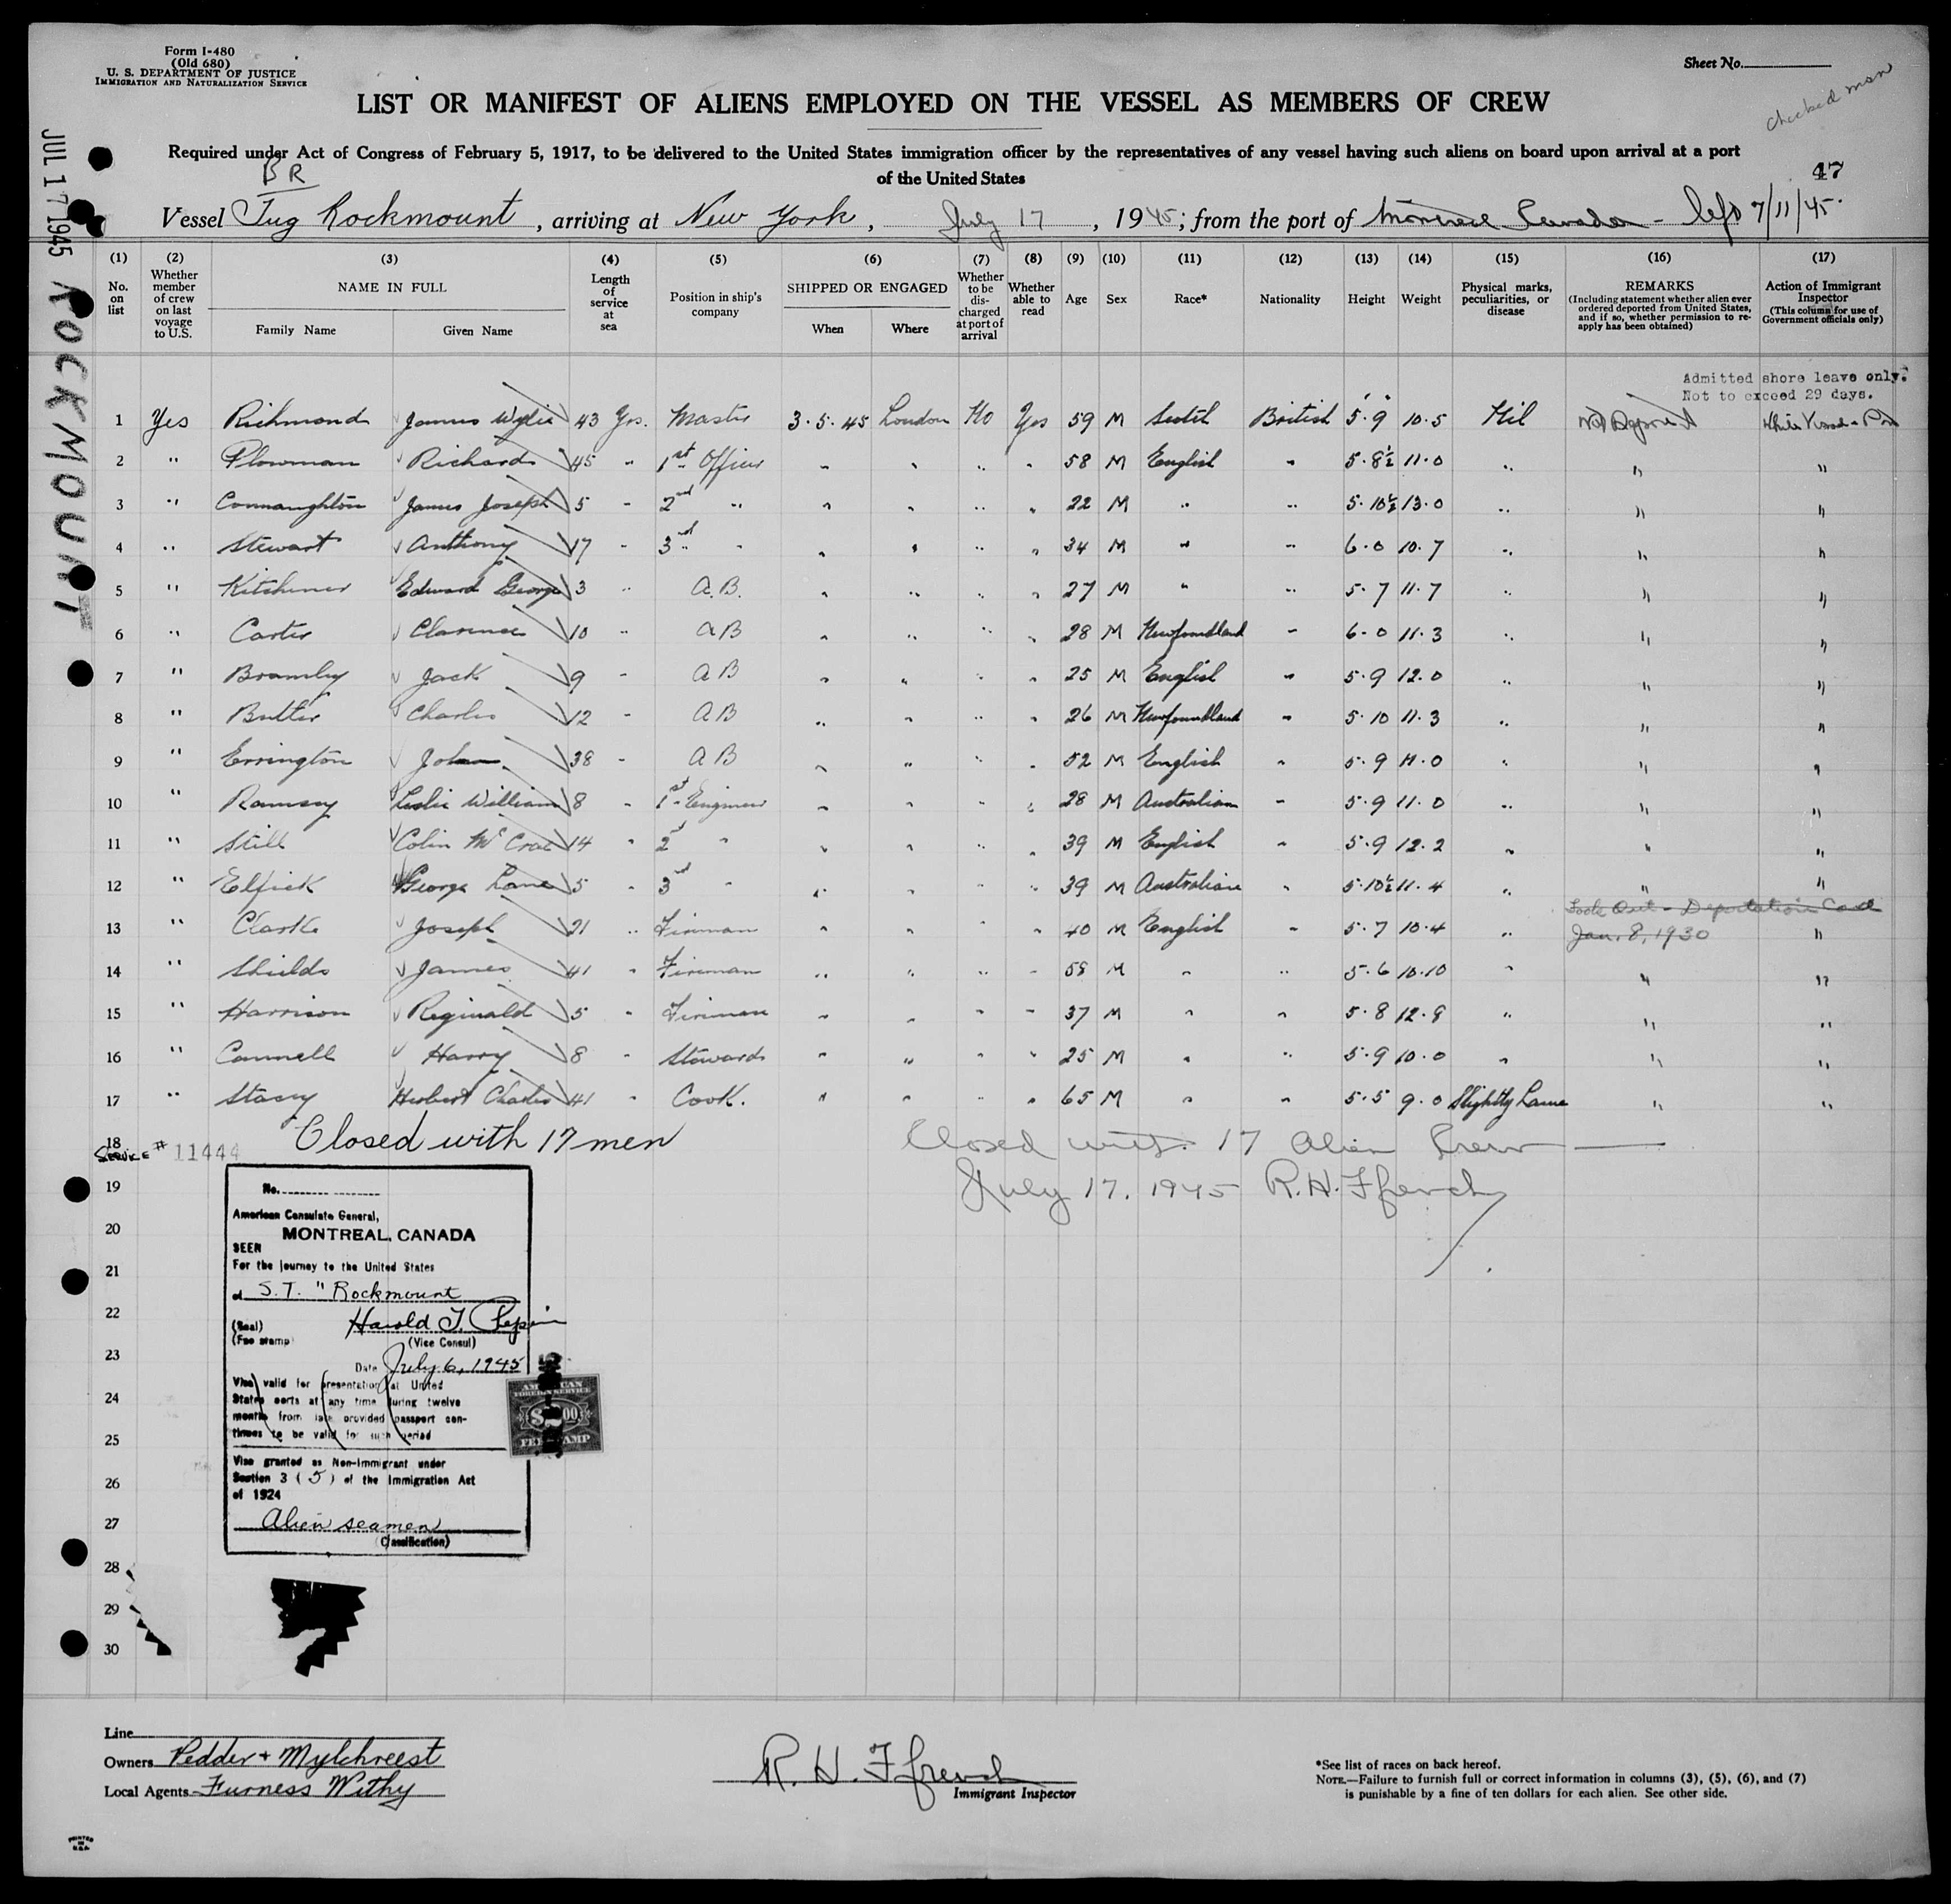 Form I-480
(Old 680)
U. S. DEPARTMENT OF JUSTICE
IMMIGRATION AND NATURALIZATION SERVICE
Sheet No.
checked man
LIST OR MANIFEST OF ALIENS EMPLOYED ON THE VESSEL AS MEMBERS OF CREW
Required under Act of Congress of February 5, 1917, to be delivered to the United States immigration officer by the representatives of any vessel having such aliens on board upon arrival at a port
of the United States
47
BR
Vessel Tug Rockmount, arriving at New York, July 17, 1945; from the port of Montreal Canada - left 7/11/45.
JUL 17 1945 ROCKMOUNT
(1) No. on list
(2) Whether member of crew on last voyage to U.S.
(3) NAME IN FULL
Family Name Given Name
(4) Length of service at sea
(5) Position in ship's company
(6) SHIPPED OR ENGAGED
When Where
(7) Whether to be discharged at port of arrival
(8) Whether able to read
(9) Age
(10) Sex
(11) Race*
(12) Nationality
(13) Height
(14) Weight
(15) Physical marks, peculiarities, or disease
(16) REMARKS
(Including statement whether alien ever ordered deported from United States, and if so, whether permission to re-apply has been obtained)
(17) Action of Immigrant Inspector
(This column for use of Government officials only)
Admitted shore leave only.
Not to exceed 29 days.
1 Yes Richmond James Wylie 43 Yrs. Master 3.5.45 London No Yes 59 M Scotch British 5'.9" 10.5 Nil
2 " Plowman Richard 45 " 1st Officer " " " " 58 M English " 5.8½ 11.0 " " "
3 " Connaughton James Joseph 5 " 2nd " " " " " 22 M " " 5.10½ 13.0 " " "
4 " Stewart Anthony 17 " 3rd " " " " " 34 M " " 6.0 10.7 " " "
5 " Kitchener Edward George 3 " A.B. " " " " 27 M " " 5.7 11.7 " " "
6 " Carter Clarence 10 " AB " " " " 28 M Newfoundland " 6.0 11.3 " " "
7 " Bramley Jack 9 " AB " " " " 25 M English " 5.9 12.0 " " "
8 " Butler Charles 12 " AB " " " " 26 M Newfoundland " 5.10 11.3 " " "
9 " Errington John 38 " AB " " " " 52 M English " 5.9 11.0 " " "
10 " Ramsey Leslie William 8 " 1st Engineer " " " " 28 M Australian " 5.9 11.0 " " "
11 " Still Colin McCrae 14 " 2d " " " " " 39 M English " 5.9 12.2 " " "
12 " Elfick George Lane 5 " 3rd " " " " " 39 M Australian " 5.10½ 11.4 " " "
Look Out - Deportation Case
13 " Clark Joseph 21 " Fireman " " " " 40 M English " 5.7 10.4 " Jan. 8, 1930 "
14 " Shields James 41 " Fireman " " " " 58 M " " 5.6 10.10 " " "
15 " Harrison Reginald 5 " Fireman " " " " 37 M " " 5.8 12.8 " " "
16 " Cannell Harry 8 " Steward " " " " 25 M " " 5.9 10.0 " " "
17 " Stacey Herbert Charles 41 " Cook. " " " " 65 M " " 5.5 9.0 Slightly Lame " "
18 Closed with 17 men Closed with 17 Alien Crew
Service # 11444
19 July 17, 1945 R.H. Ffrench
20
21
22
23
24
25
26
27
28
29
30
No.
American Consulate General,
MONTREAL, CANADA
SEEN
For the journey to the United States
of S.T. "Rockmount
(Seal) Harold T.
(Fee stamp) (Vice Consul)
Date July 6, 1945
Visa valid for presentation at United
States ports at any time during twelve
months from date provided passport con-
tinues to be valid for such period
AMERICAN
FOREIGN SERVICE
FEE STAMP
Visa granted as Non-Immigrant under
Section 3 (5) of the Immigration Act
of 1924
Alien seamen
(Classification)
Line
Owners Pedder + Mylchreest
Local Agents Furness Withy
R. H. Ffrench
Immigrant Inspector
*See list of races on back hereof.
NOTE.—Failure to furnish full or correct information in columns (3), (5), (6), and (7)
is punishable by a fine of ten dollars for each alien. See other side.
PRINTED
IN
U.S.A.